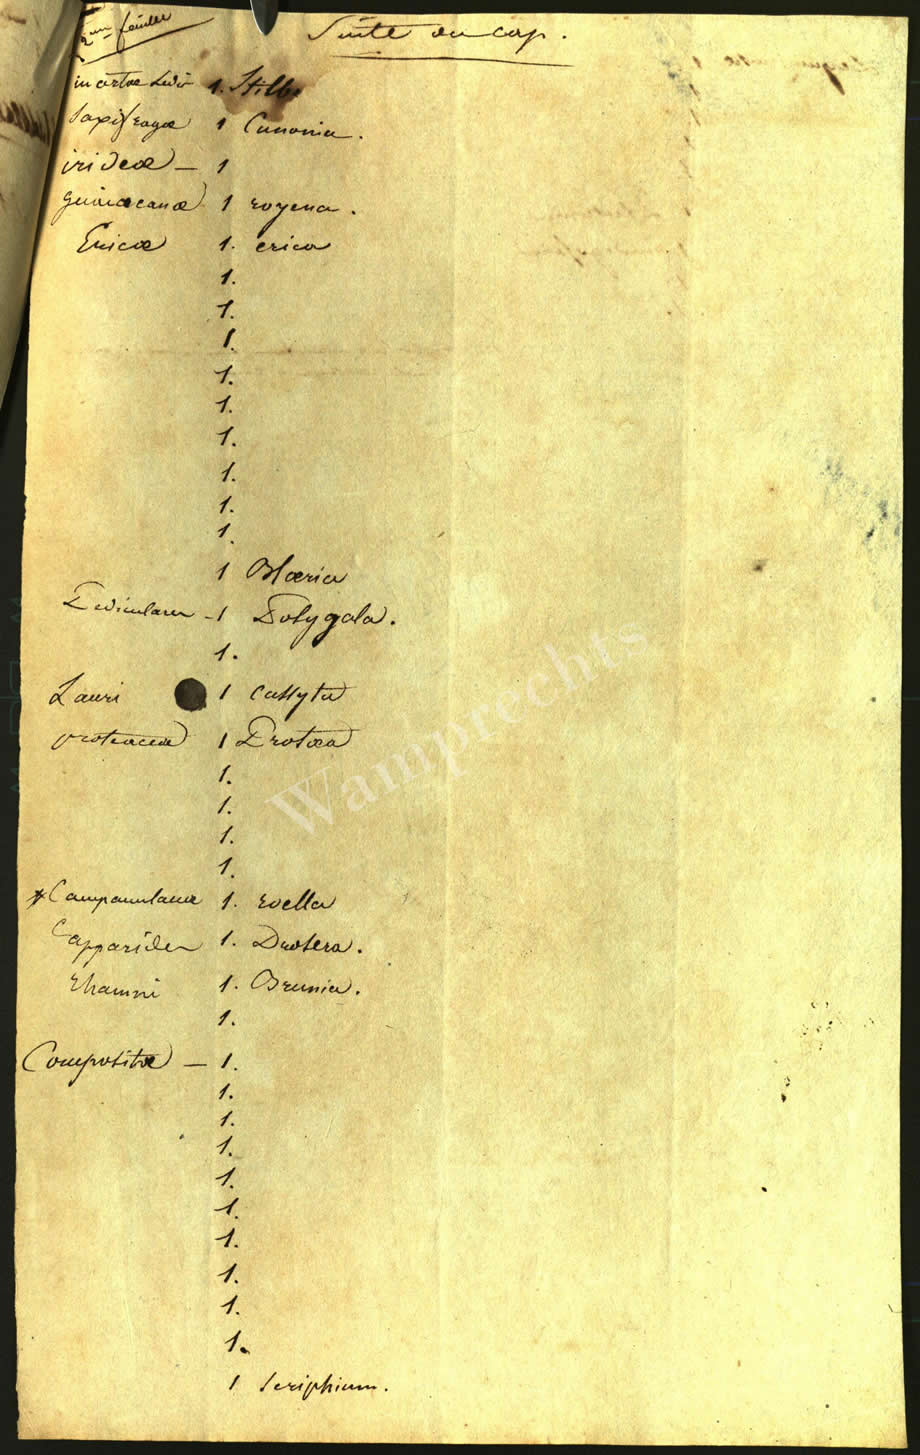 2me feuille
Suite du cap.
incertae sedis 1. Stilbe
Saxifragae 1 Cunonia.
irideae — 1
guaiacanae 1 royena.
Ericae 1. erica
1.
1.
1.
1.
1.
1.
1.
1.
1.
1 Blaeria
Pediculares - 1 Polygala.
1.
Lauri 1 Cassyta
proteaceae 1 Protaea
1.
1.
1.
1.
* Campanulaceae 1. roella
Capparides 1. Drosera.
rhamni 1. Brunia.
1.
Compositae — 1.
1.
1.
1.
1.
1.
1.
1.
1.
1.
1 Seriphium.
Wamprechts